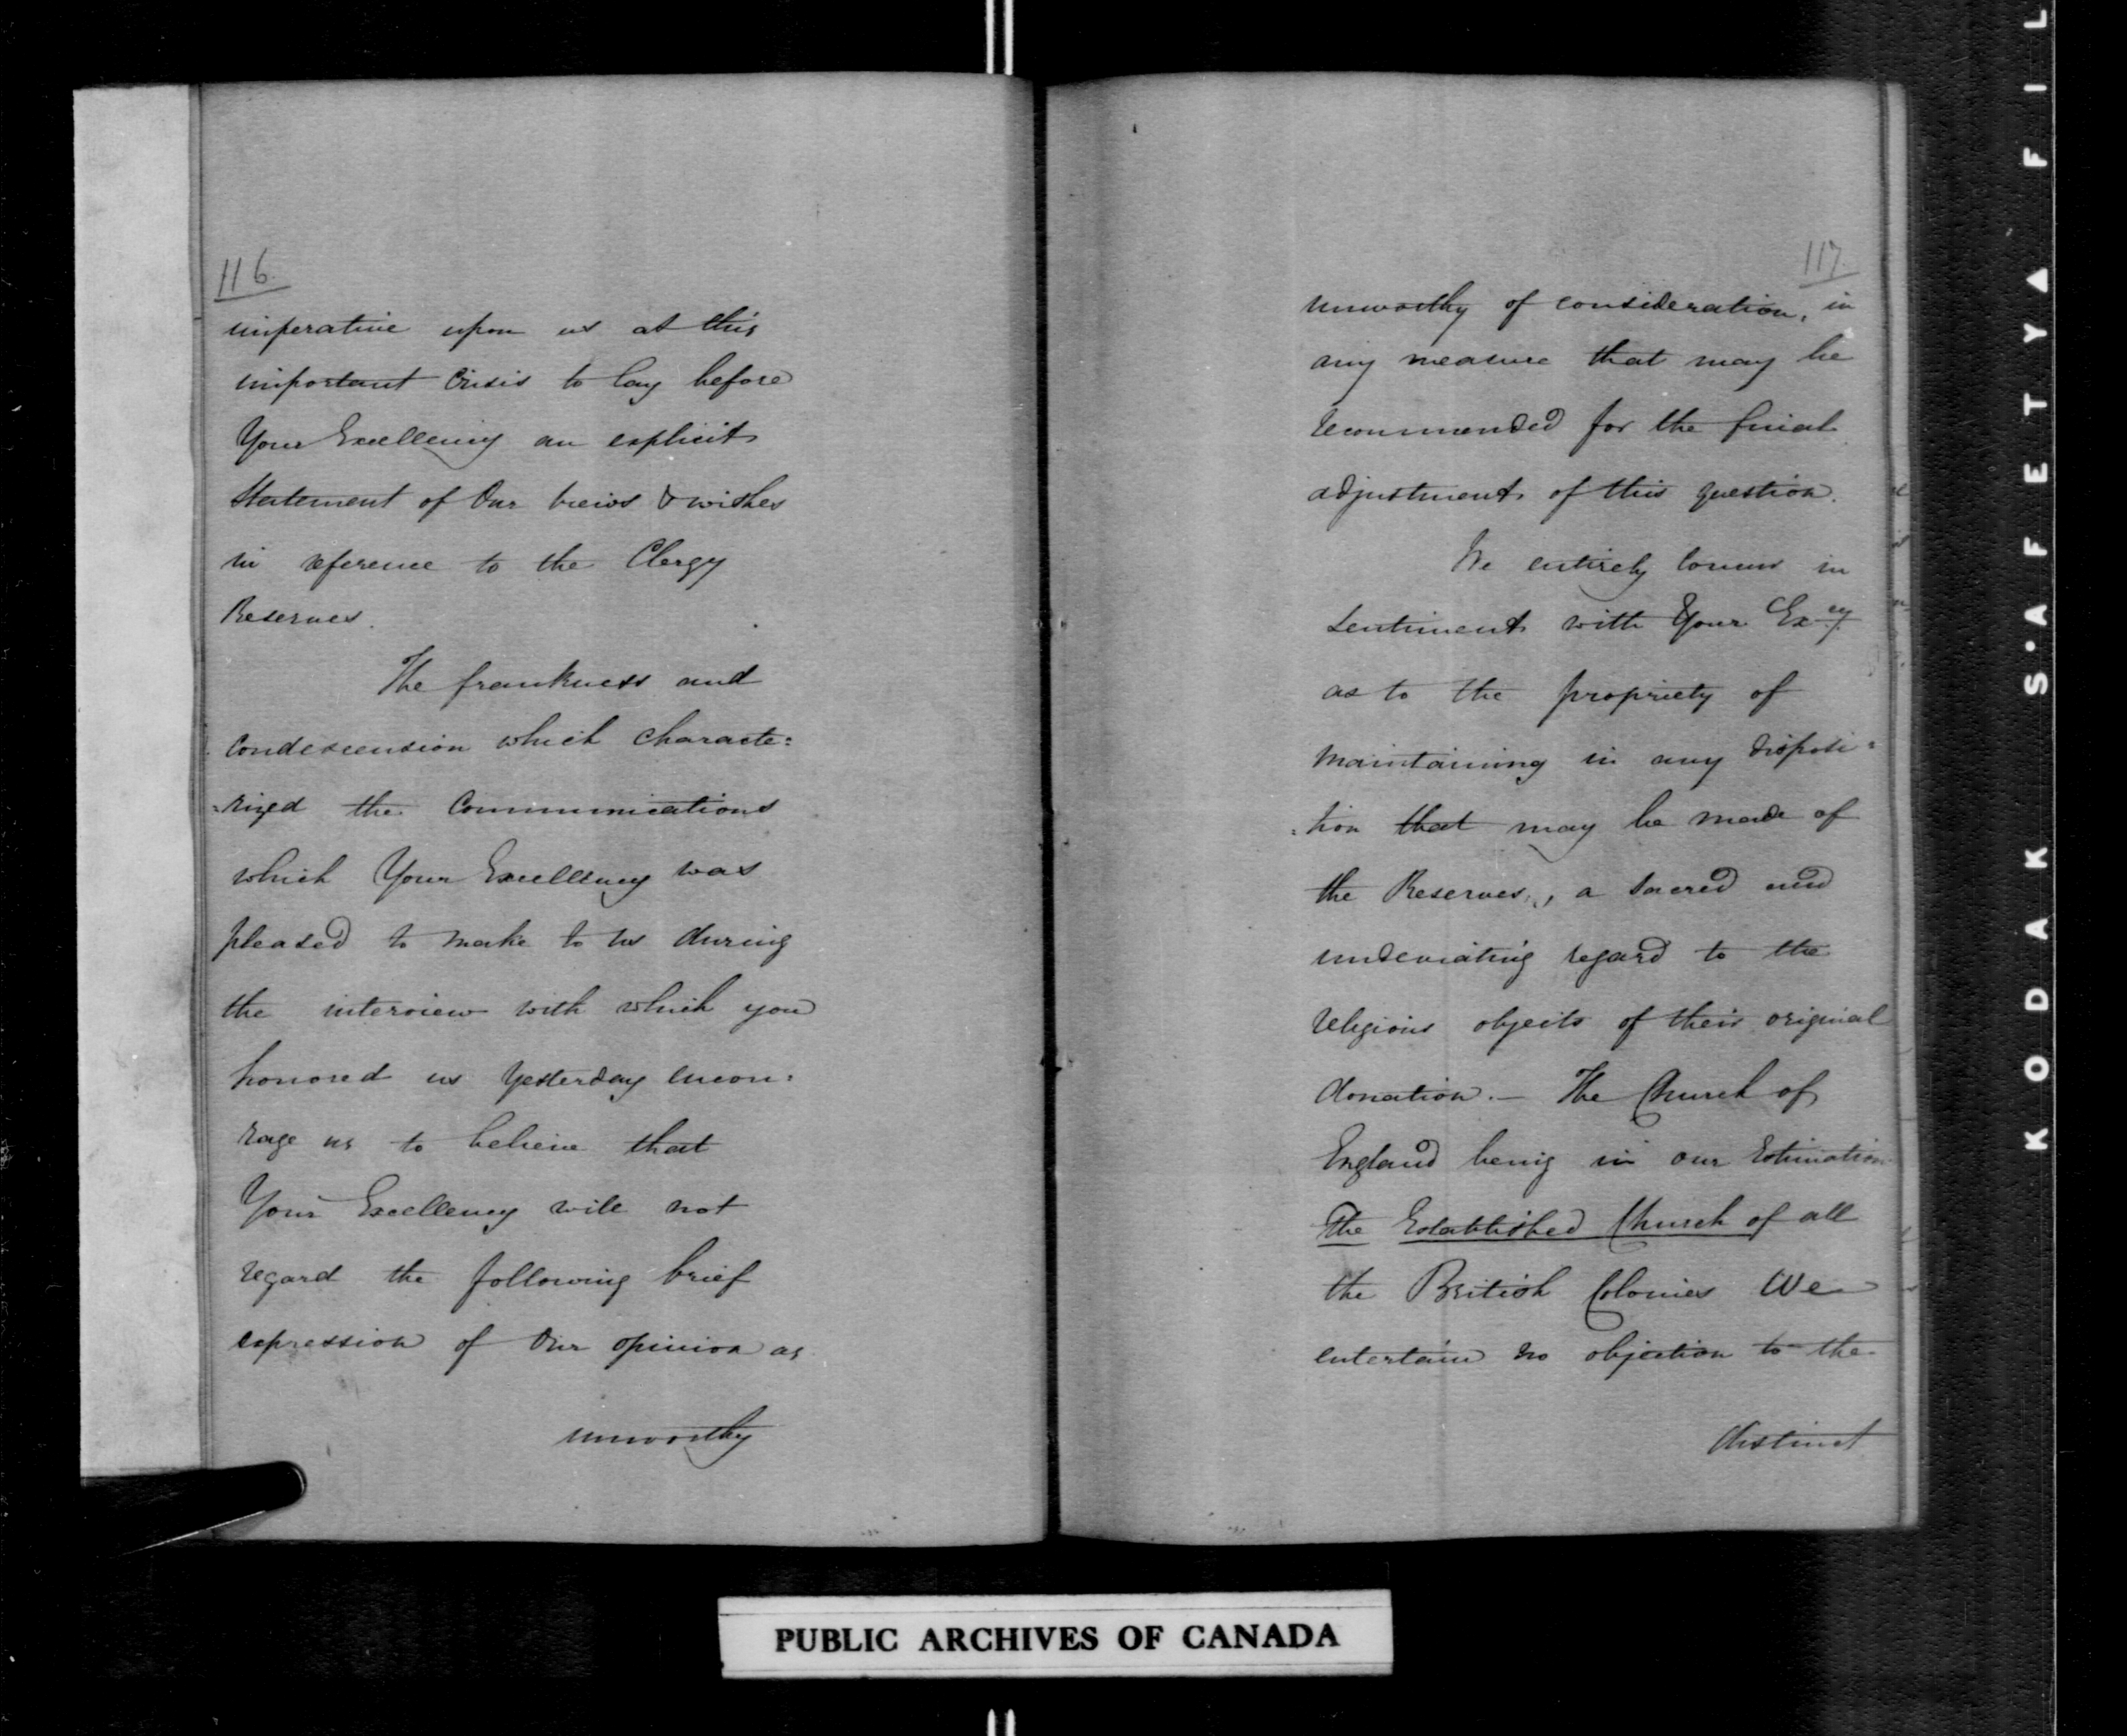 116
imperative upon us at this
important Crisis to lay before
Your Excellency an explicit
Statement of Our views & wishes
in reference to the Clergy
Reserves.
The frankness and
Condescension which characte=
=rized the Communications
which Your Excellency was
pleased to make to us during
the interview with which you
honored us yesterday encou=
rage us to believe that
Your Excellency will not
regard the following brief
expression of Our opinion as
unworthy
117.
unworthy of consideration, in
any measure that may be
recommended for the final
adjustment of this question.
We entirely concur in
Sentiment with Your Excy.
as to the propriety of
Maintaining in any disposi=
=tion that may be made of
the Reserves, a Sacred and
undeviating regard to the
religious objects of their original
donation.— The Church of
England being in our Estimation
The Established Church of all
the British Colonies We
entertain no objection to the
distinct
PUBLIC ARCHIVES OF CANADA
KODAK S'AFETY FIL